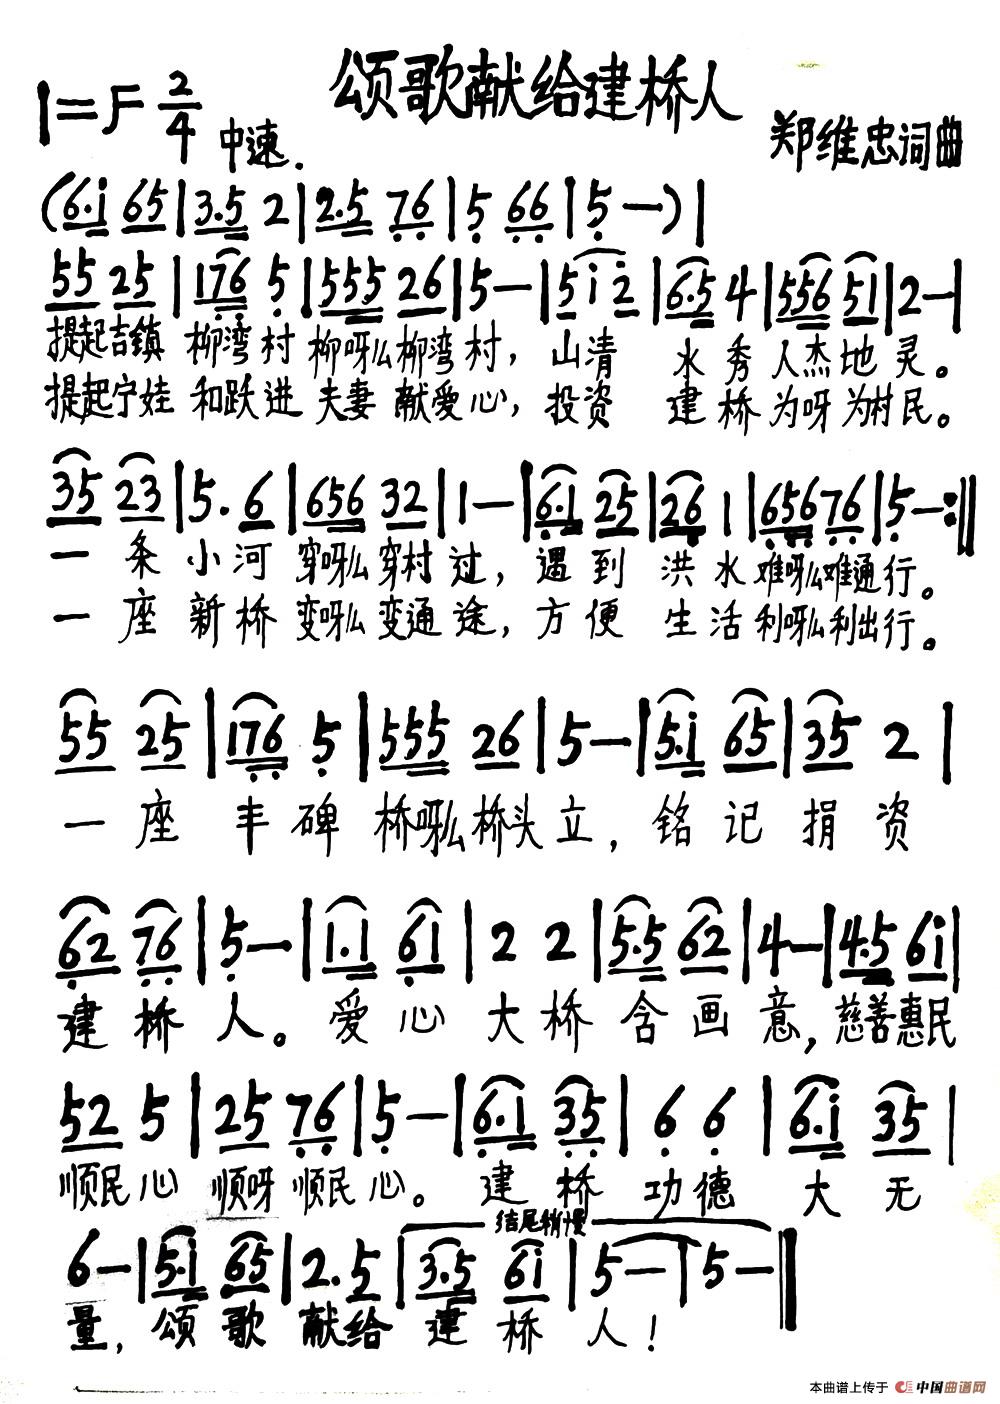 颂歌献给建桥人
1=F 2/4 中速.
郑维忠词曲
(6·i 65|3·5 2|2·5 76|5 66|5 —)|
55 25|176 5|555 26|5 —|5 i 2|6·5 4|556 51|2 —|
提起吉镇 柳湾村 柳呀么柳湾村，山清 水秀人杰地灵。
提起宁娃 和跃进 夫妻 献爱心，投资 建桥为呀为村民。
35 23|5. 6|656 32|1 —|6·1 25|26 1|656 76|5 —:||
一条小河穿呀么穿村过，遇到洪水难呀么难通行。
一座新桥变呀么变通途，方便生活利呀么利出行。
55 25|176 5|555 26|5 —|5·i 65|35 2|
一座丰碑桥呀么桥头立，铭记捐资
62 76|5 —|1·1 61|2 2|5·5 62|4 —|4·5 6i|
建桥人。爱心大桥含画意，慈善惠民
52 5|25 76|5 —|6·1 35|6 6|6·i 35|
顺民心 顺呀顺民心。建桥功德大无
结尾稍慢
6 —|5·i 65|2. 5|3·5 6i|5 —|5 —||
量，颂歌献给建桥人！
本曲谱上传于 中国曲谱网